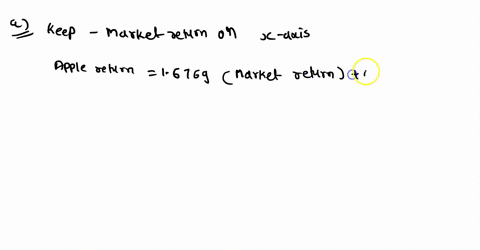 a) Keep - Market return on x-axis
Apple return = 1.6769 (Market return) +